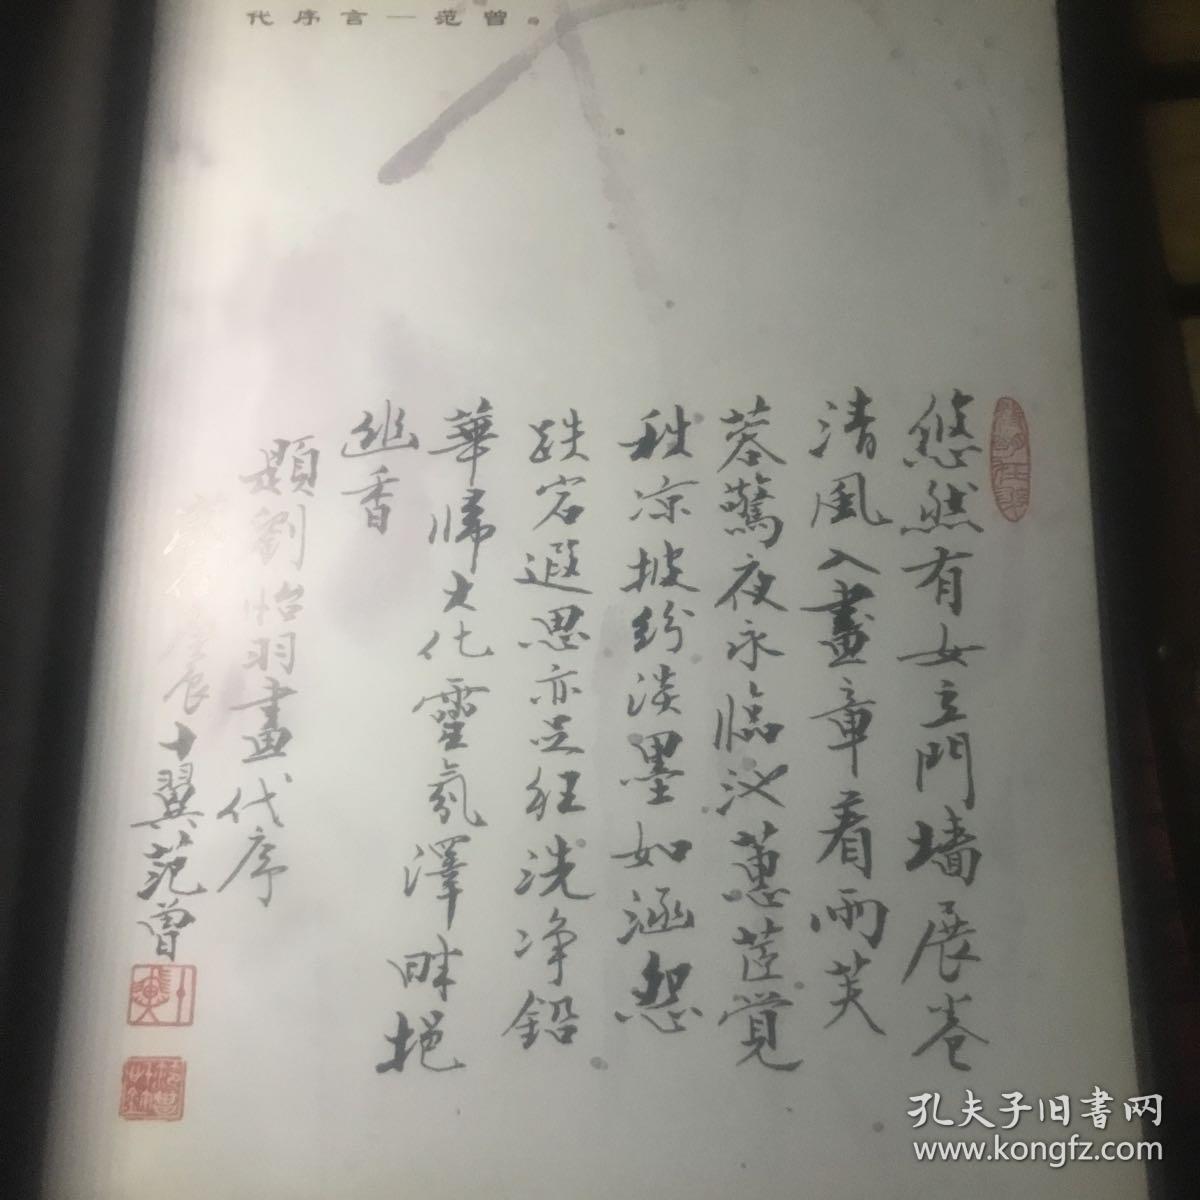 代序言—范曾
悠然有女立門墻展卷
清風入畫章看雨芙
蓉驚夜永臨汲蕙茝覺
秋凉披紛淡墨如涵怨
跌宕遐思亦足狂洗净鉛
華歸大化靈氛澤畔挹
幽香
題劉怡羽畫代序
庚辰十翼范曾
孔夫子旧書网
www.kongfz.com